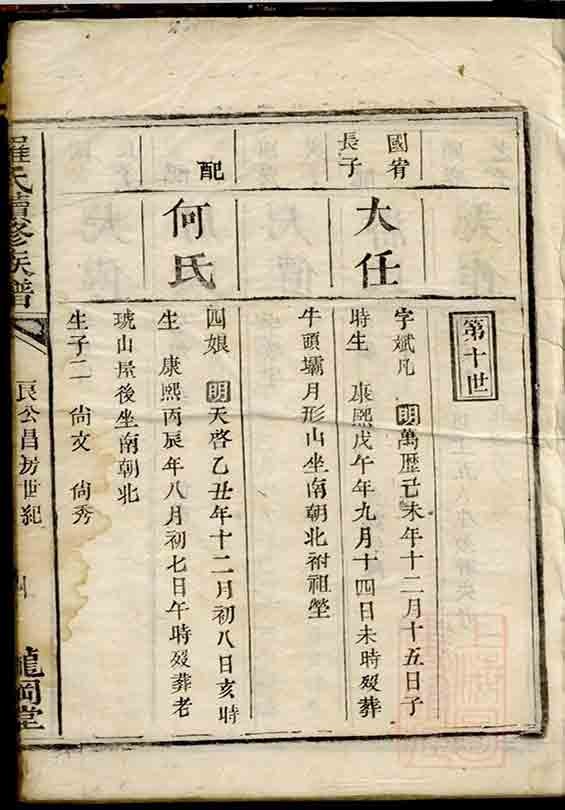 第十世
國宥
長子
大任
字斌凡 明萬歷己未年十二月十五日子
時生 康熙戊午年九月十四日未時歿葬
牛頭壩月形山坐南朝北祔祖塋
配
何氏
四娘 明天啓乙丑年十二月初八日亥時
生 康熙丙辰年八月初七日午時歿葬老
琥山屋後坐南朝北
生子二 尙文 尙秀
羅氏續修族譜
良公昌房世紀
龍岡堂